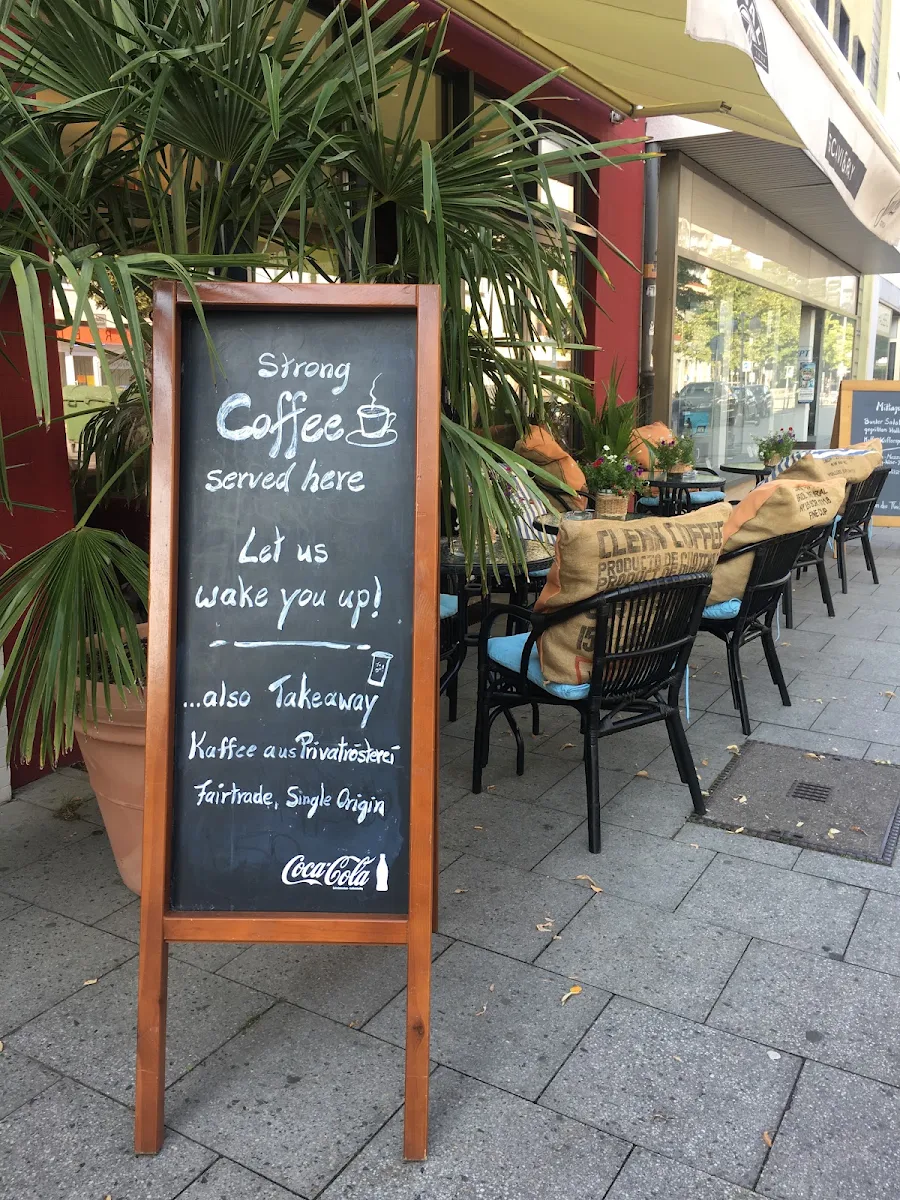 Strong
Coffee
served here
Let us
wake you up!
...also Takeaway
Kaffee aus Privatrösterei
Fairtrade, Single Origin
Coca-Cola
CLEAN COFFEE
PRODUCTO DE
FINE CUP